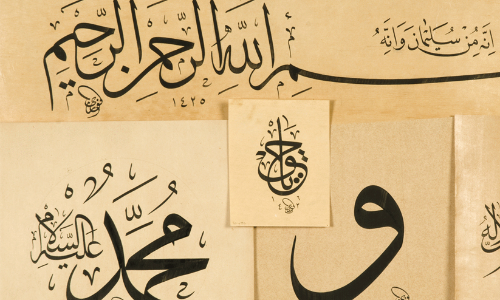 اِنَّهُ مِنْ سُلَيْمَانَ وَاِنَّهُ
بِسْمِ اللّٰهِ الرَّحْمٰنِ الرَّحِيمِ
١٤٢٥
مُحَمَّد
عَلَيْهِ السَّلَام
و